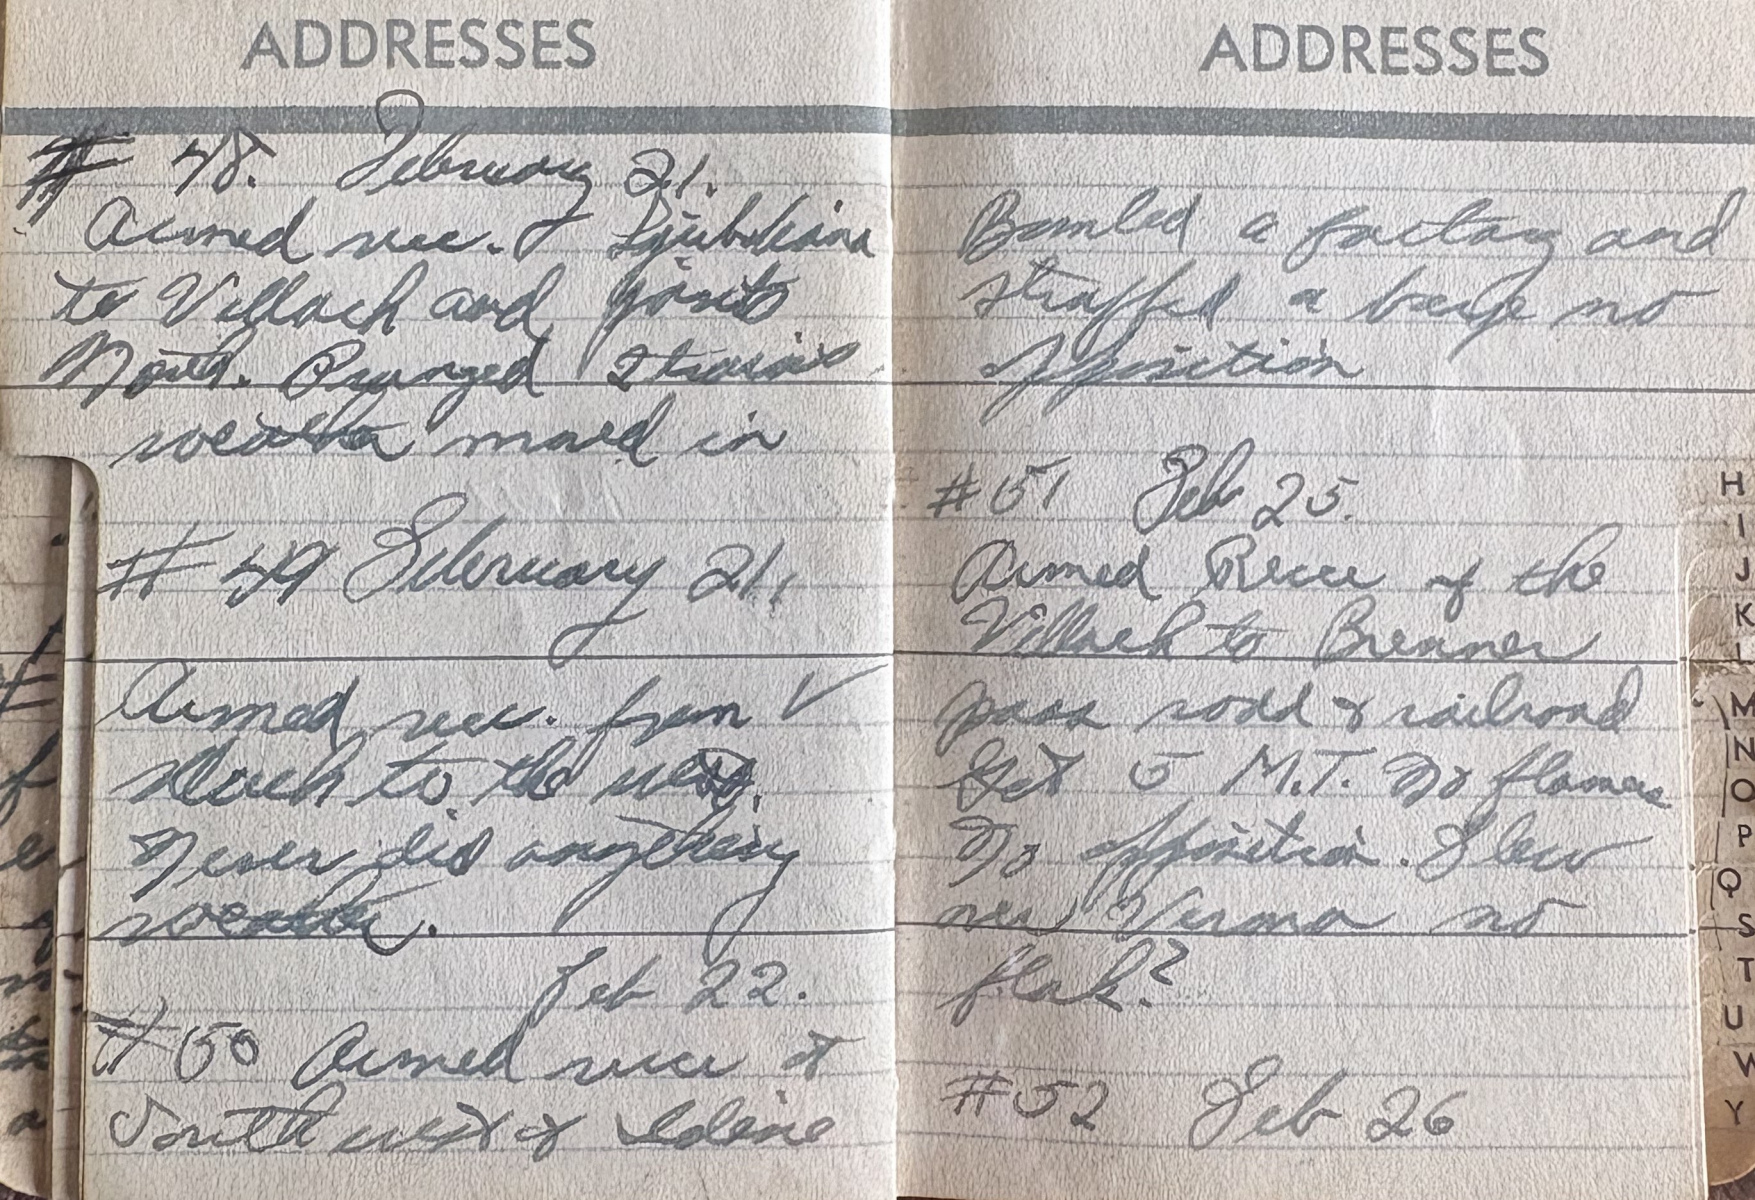 ADDRESSES
# 48. February 21.
Armed rec. of Ljubliana
to Villach and points
North. Pranged 2 trains
weather moved in
# 49 February 21.
Armed rec. from V
illach to the west.
Never did anything
weather.
Feb 22.
#50 Armed recce of
South west of Udine
ADDRESSES
Bombed a factory and
straffed a barge no
opposition
#51 Feb 25.
Armed Recce of the
Villach to Brenner
pass road & railroad
Got 5 M.T. No flames
No opposition. Flew
over Verona no
flak?
#52 Feb 26
H
I
J
K
L
M
N
O
P
Q
S
T
U
W
Y